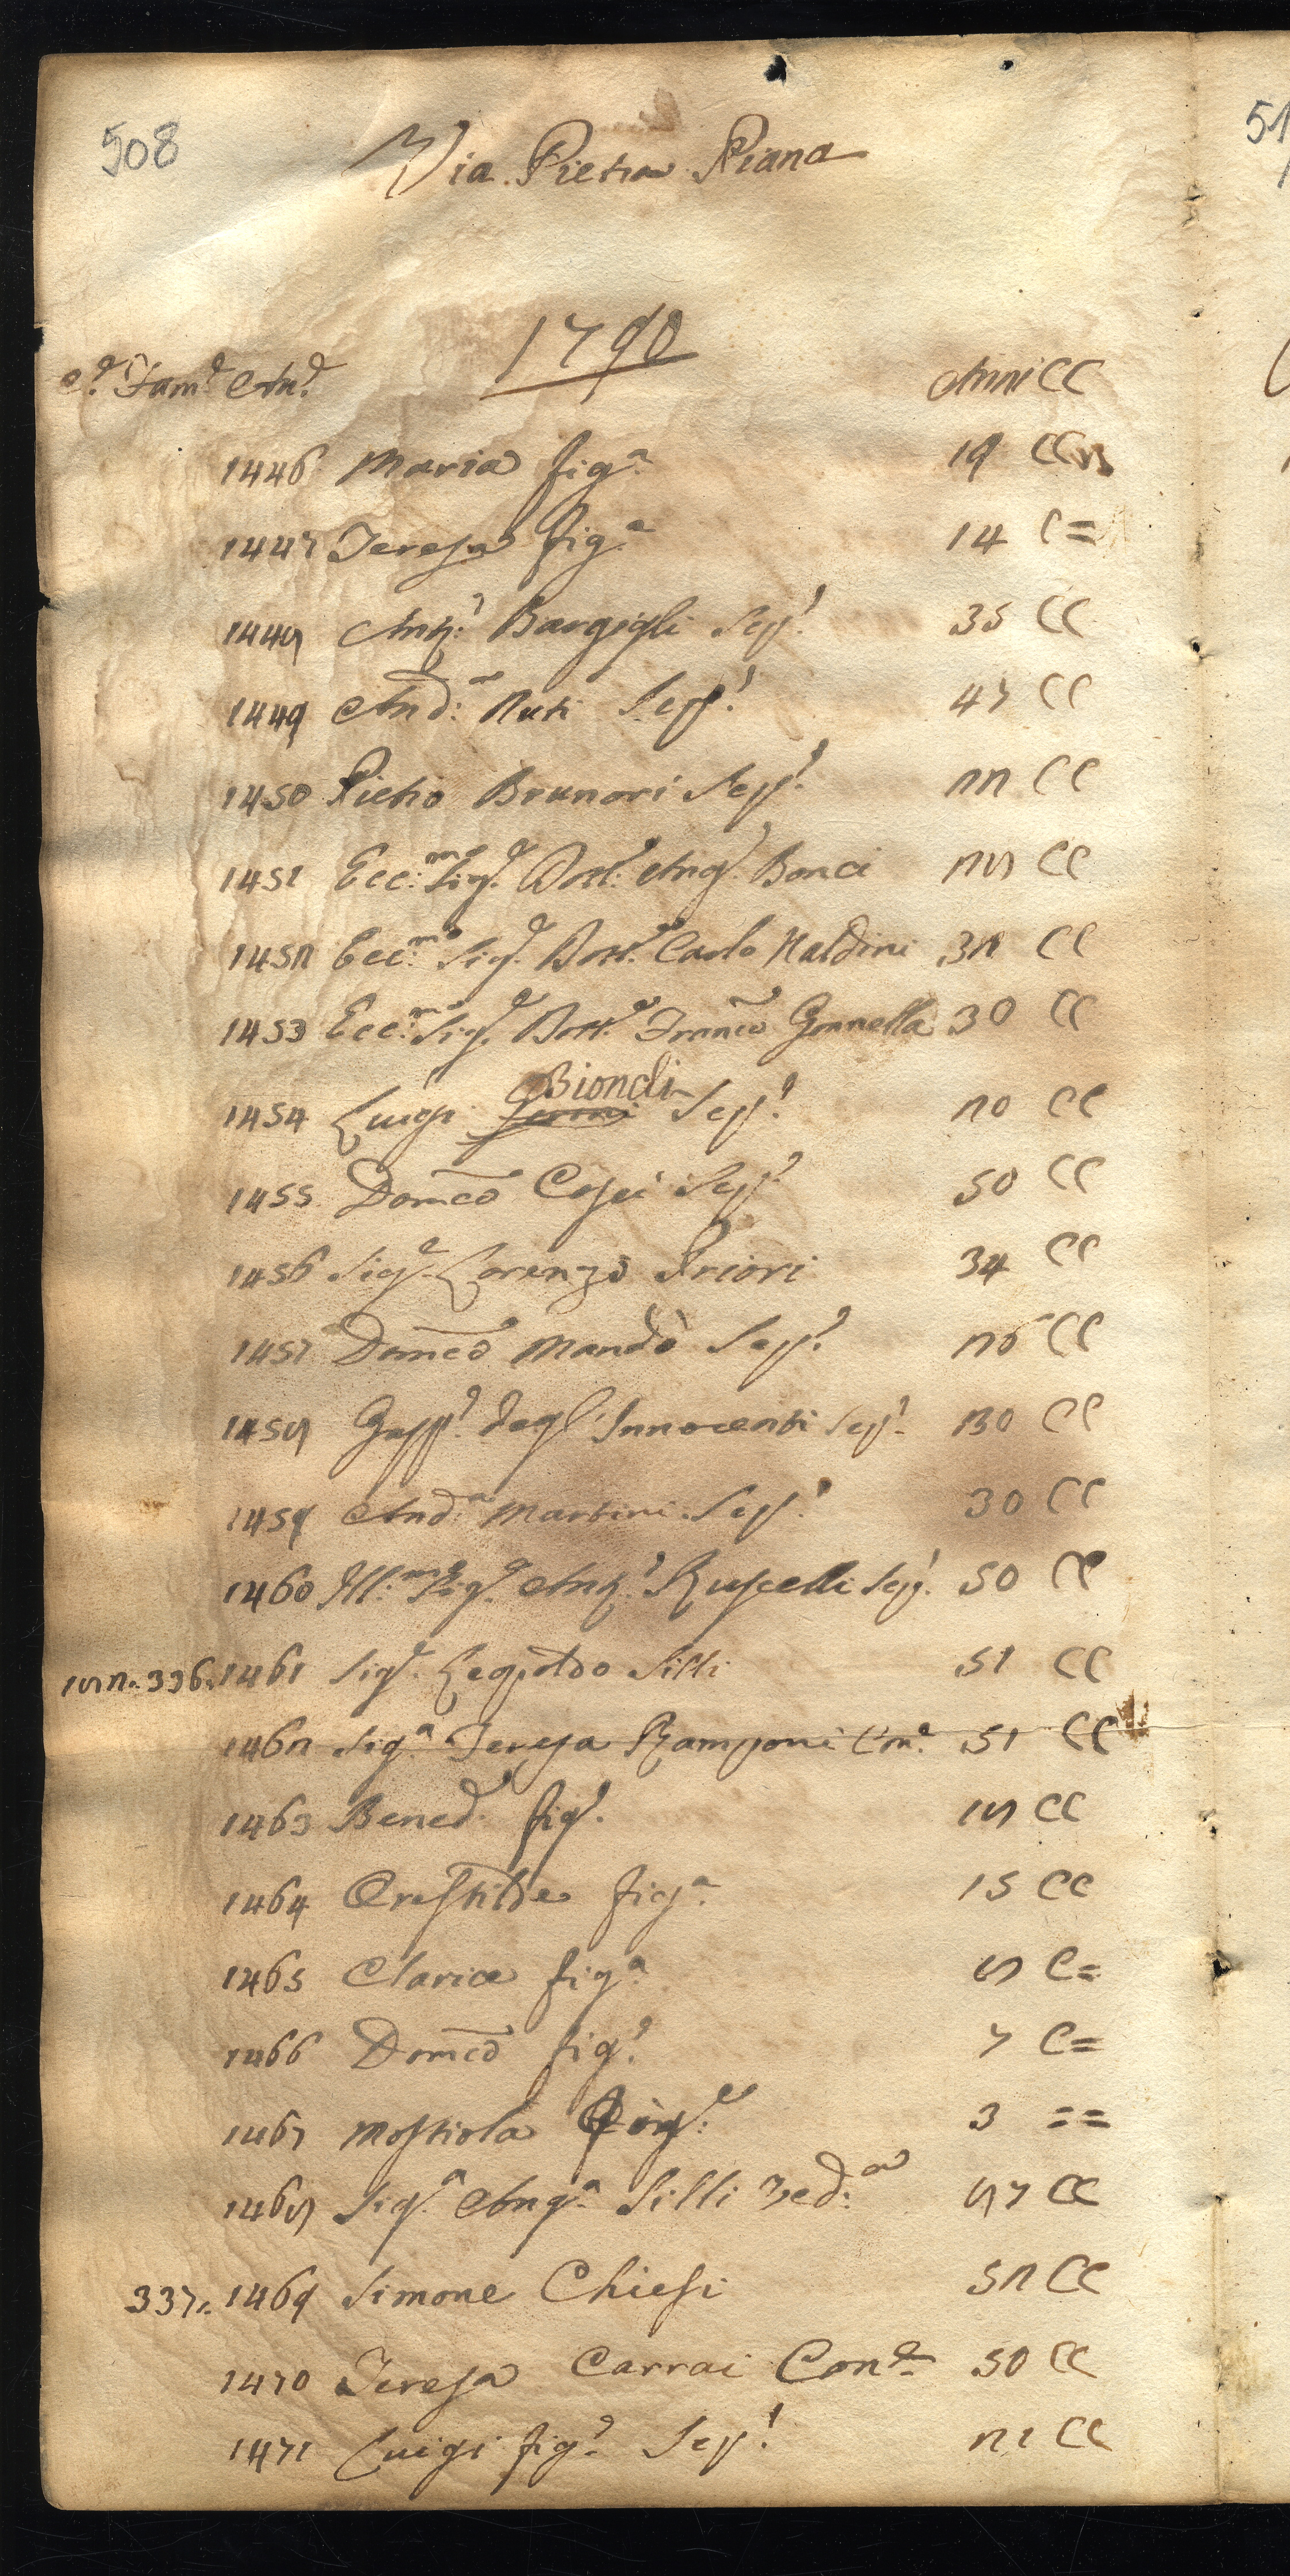 508
51
Via Pietra Piana
1790
C.e Fam.e An.e Anni CC
1446 Maria fig.a 19 CC
1447 Teresa fig.a 14 C=
1448 Ant.o Bargigli Sep.o 35 CC
1449 And.a Nuti Sep.o 47 CC
1450 Pietro Brunori Sep.o 22 CC
1451 Ecc.mo Sig.e Dott.e Ang.o Bonci 28 CC
1452 Ecc.mo Sig.e Dott.e Carlo Naldini 32 CC
1453 Ecc.mo Sig.e Dott.e Franco Gonnella 30 CC
1454 Luigi Biondi Sep.o 20 CC
1455 Domco Cosci Sep.o 50 CC
1456 Sig.e Lorenzo Priori 34 CC
1457 Domco Mandò Sep.o 26 CC
1458 Gasp.o degl'Innocenti Sep.o CC
1459 And.a Martini Sep.o 30 CC
1460 Ill.mo Sig.e Ant.o Ruscelli Sep.o 50 CC
182. 336. 1461 Sig.e Leopoldo Silli 51 CC
1462 Sig.a Teresa Ramponi Con.e 51 CC
1463 Bened.o fig.o 18 CC
1464 Crestilde fig.a 15 CC
1465 Clarice fig.a 8 C=
1466 Domco fig.o 7 C=
1467 Mostiola fig.a 3 ==
1468 Sig.a Ang.a Silli Ved.a 87 CC
337. 1469 Simone Chiesi 52 CC
1470 Teresa Carrai Con.e 50 CC
1471 Luigi fig.o Sep.o 21 CC